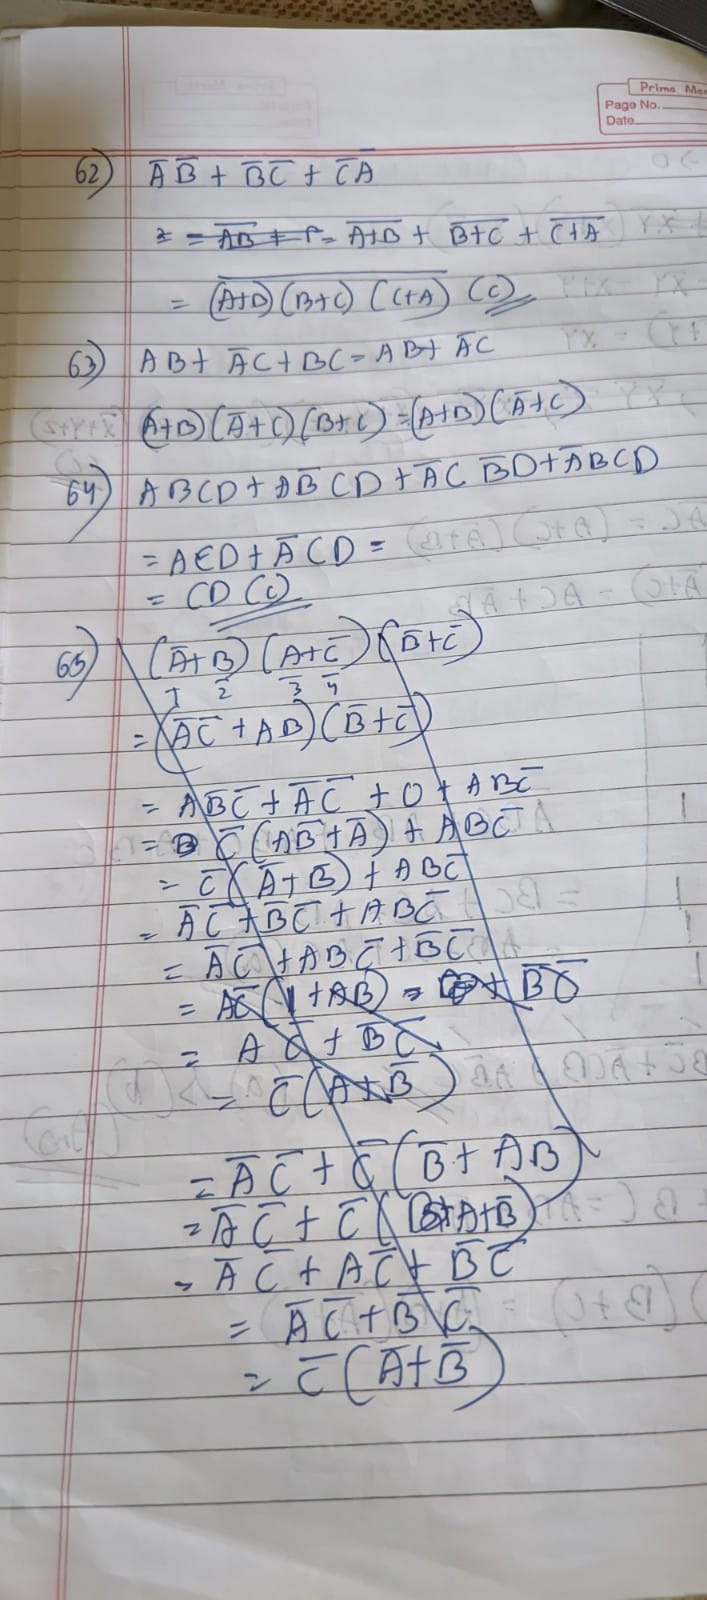 Prime Mar
Page No.
Date
62) A̅ B̅ + B̅ C̅ + C̅ A̅
= \overline{A+B} + \overline{B+C} + \overline{C+A}
= \overline{(A+B) (B+C) (C+A)} (C)
63) AB + A̅C + BC = AB + A̅C
(A+B) (A̅+C) (B+C) = (A+B) (A̅+C)
64) ABCD + AB̅CD + A̅C B̅D + A̅BCD
= ACD + A̅CD =
= CD (C)
65) (A̅+B) (A+C̅) (B̅+C̅)
1 2 3 4
= (A̅C̅ + AB) (B̅+C̅)
= A̅B̅C̅ + A̅C̅ + 0 + ABC̅
= C̅ (AB̅ + A̅) + ABC̅
= C̅ (A̅+B̅) + ABC̅
= A̅C̅ + B̅C̅ + ABC̅
= A̅C̅ + ABC̅ + B̅C̅
= AC̅ (1 + AB) = + B̅C̅
= A C̅ + B̅C̅
= C̅ (A+B̅)
= A̅C̅ + C̅ (B̅ + AB)
= A̅C̅ + C̅ (A+B̅)
= A̅C̅ + AC̅ + B̅C̅
= A̅C̅ + B̅C̅
= C̅ (A̅+B̅)